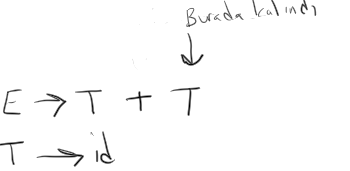 Burada kalındı
↓
E → T + T
T → id